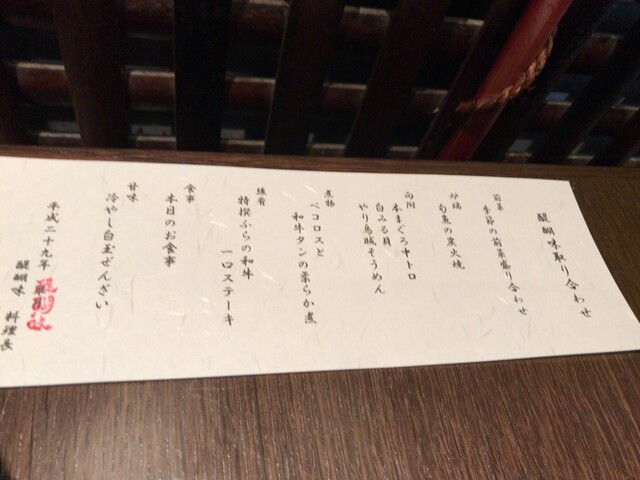 醍醐味取り合わせ
前菜
季節の前菜盛り合わせ
炉端
旬魚の炭火焼
向附
本まぐろ中トロ
白みる貝
やり烏賊そうめん
煮物
ペコロスと
和牛タンの柔らか煮
強肴
特撰ふらの和牛
一口ステーキ
食事
本日のお食事
甘味
冷やし白玉ぜんざい
平成二十九年
醍醐味 料理長